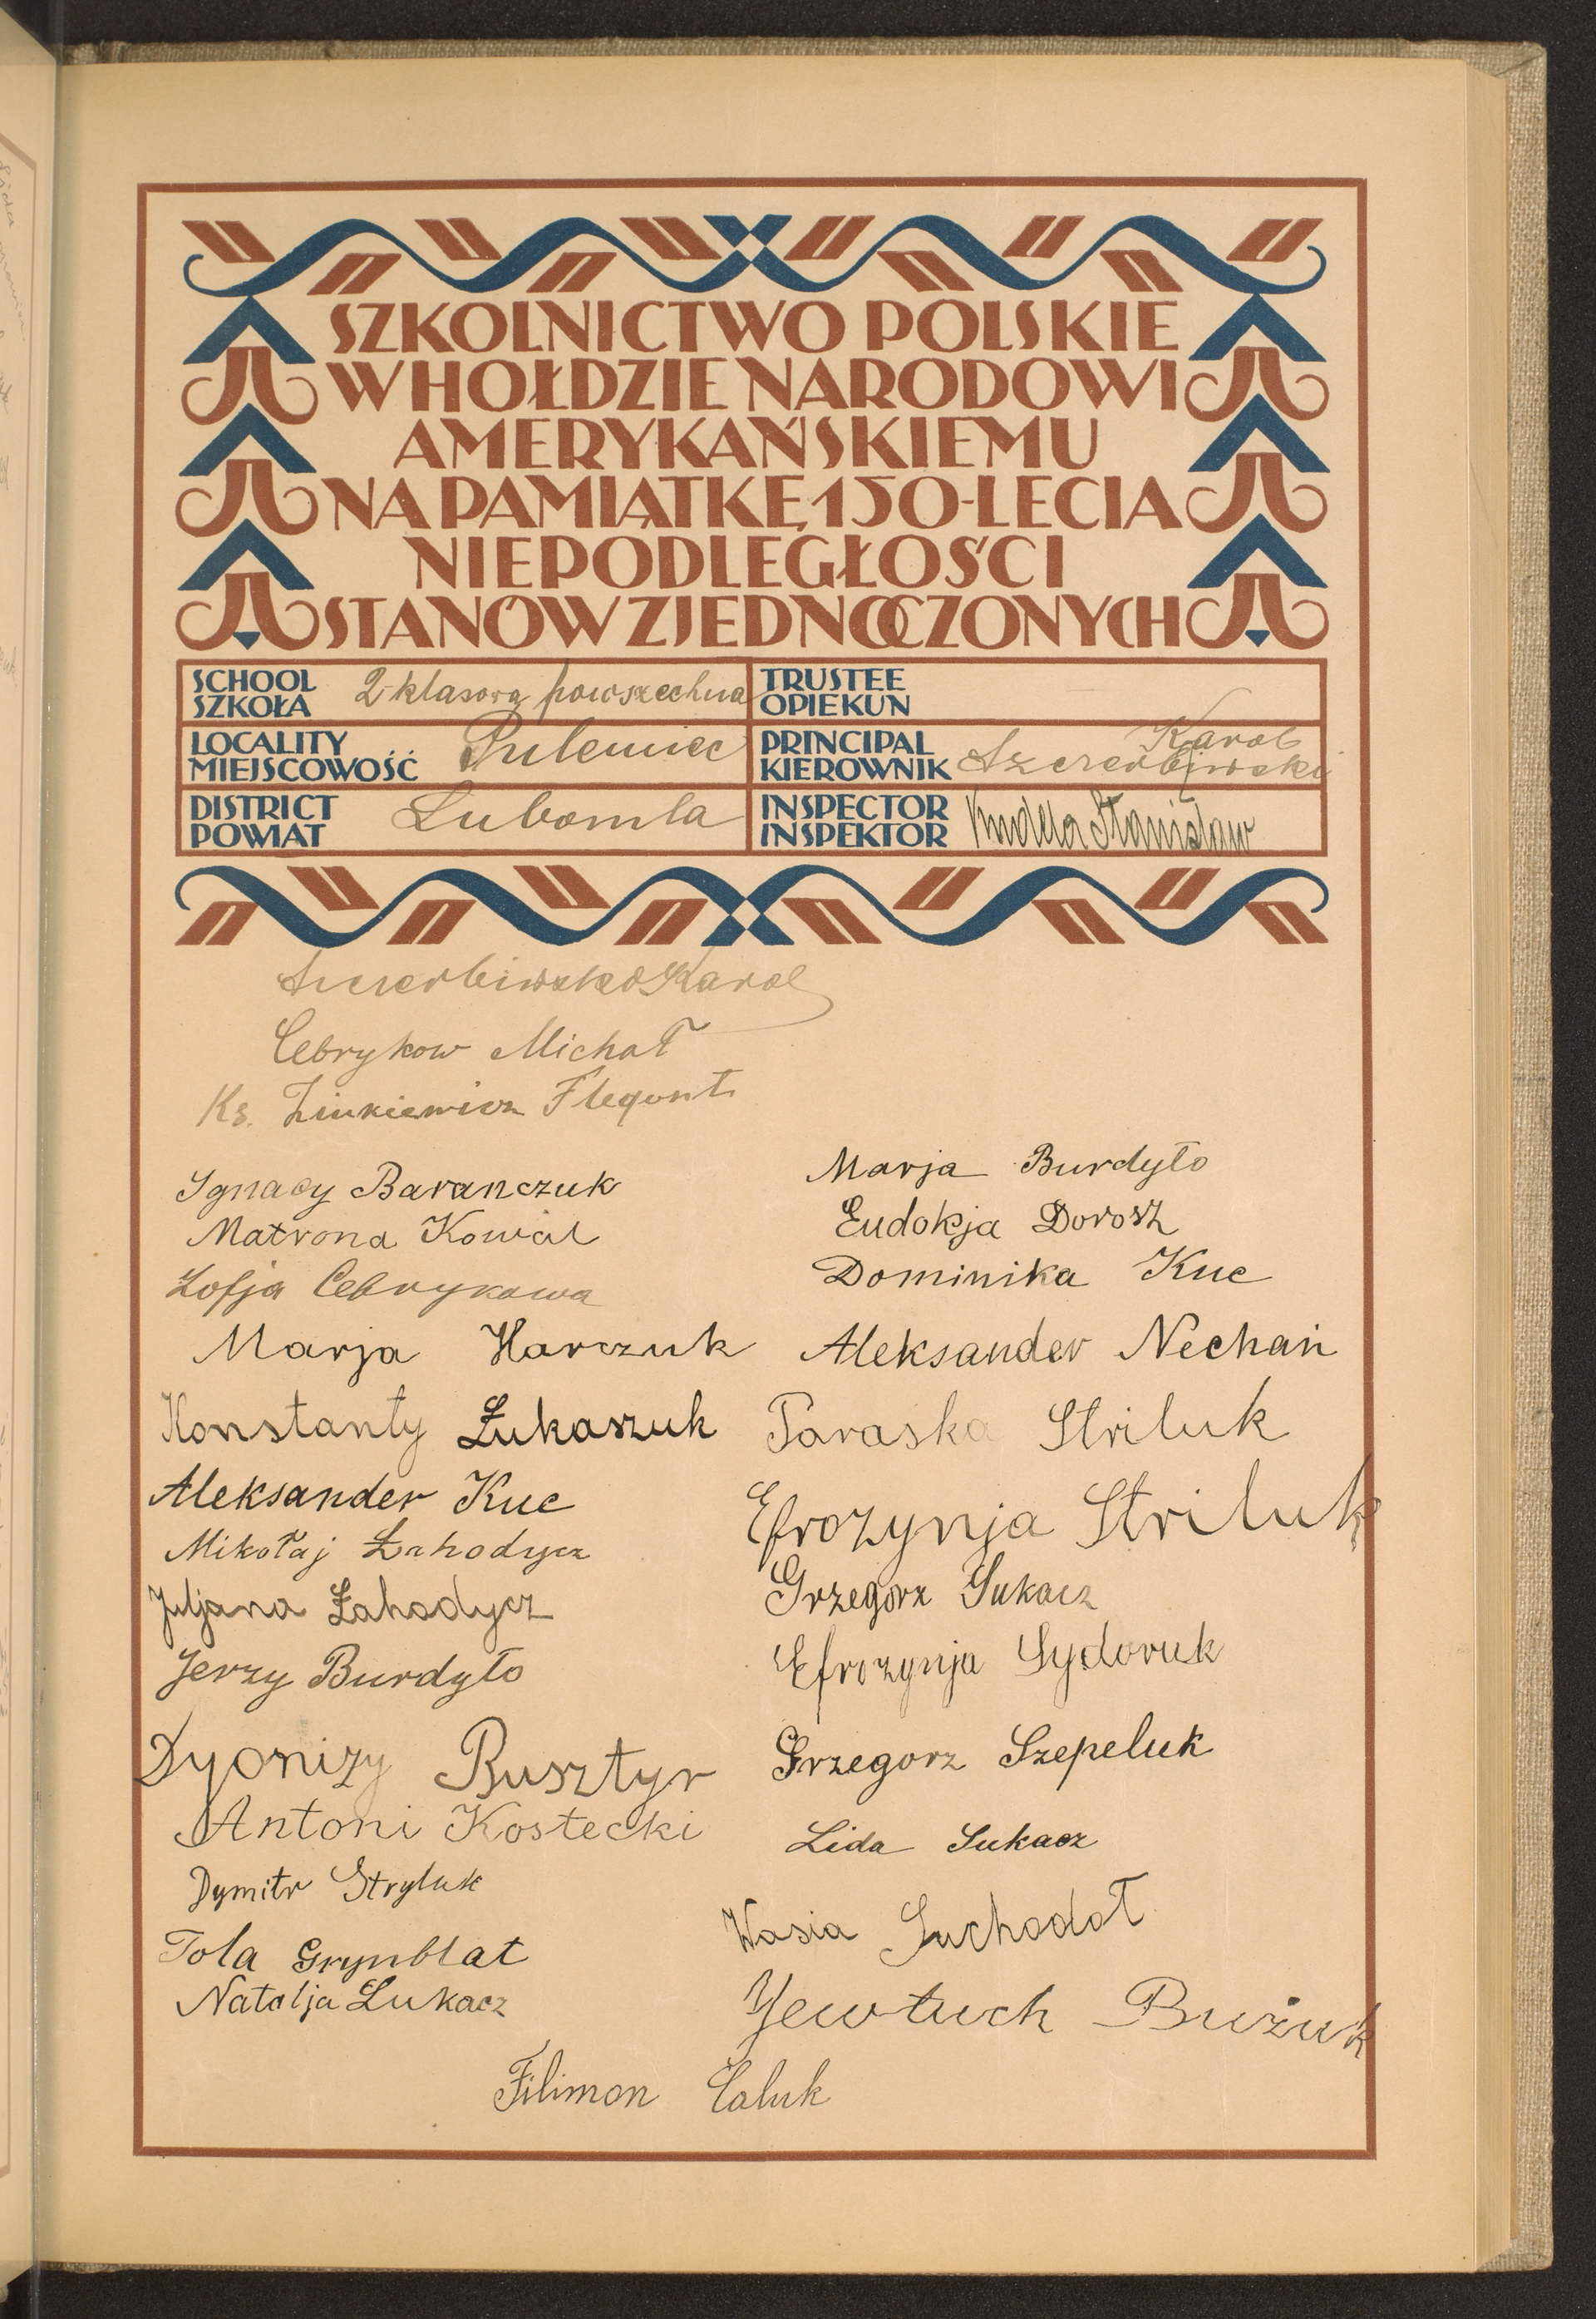 SZKOLNICTWO POLSKIE
W HOŁDZIE NARODOWI
AMERYKAŃSKIEMU
NA PAMIĄTKĘ 150-LECIA
NIEPODLEGŁOŚCI
STANÓW ZJEDNOCZONYCH
SCHOOL
SZKOŁA 2-klasowa powszechna
TRUSTEE
OPIEKUN
LOCALITY
MIEJSCOWOŚĆ Pulemiec
PRINCIPAL
KIEROWNIK Karol
Szczerbiwski
DISTRICT
POWIAT Lubomla
INSPECTOR
INSPEKTOR Stanisław
Karol
Cebrykow Michał
Ks. Zinkiewicz Flegont
Ignacy Barańczuk
Matrona Kowal
Zofja Cebrykowa
Marja Harczuk
Konstanty Łukaszuk
Aleksander Kuc
Mikołaj Łahodycz
Juljana Łahodycz
Jerzy Burdyło
Dyonizy Busztyr
Antoni Kostecki
Dymitr Stryluk
Tola Grynblat
Natalja Łukacz
Marja Burdyło
Eudokja Dorosz
Dominika Kuc
Aleksander Nechań
Paraska Striluk
Efrozynja Striluk
Grzegorz Sukacz
Efrozynja Sydoruk
Grzegorz Szepeluk
Lida Sukacz
Wasia Suchodoł
Jewtuch Bużuk
Filimon Caluk